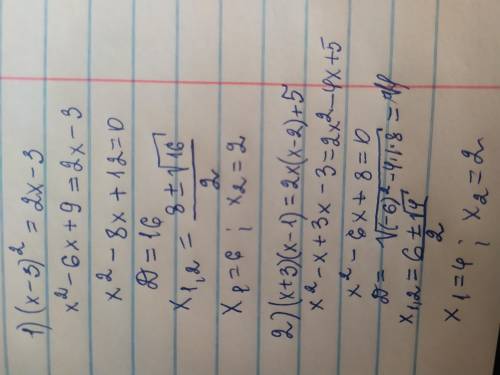 1) (x-3)² = 2x-3
x²-6x+9 = 2x-3
x²-8x+12=0
D=16
x1,2 = 8±√16 / 2
x1=6; x2=2
2) (x+3)(x-1)=2x(x-2)+5
x²-x+3x-3=2x²-4x+5
x²-6x+8=0
D=√(-6)²-4·1·8=√4
x1,2=6±√4 / 2
x1=4; x2=2